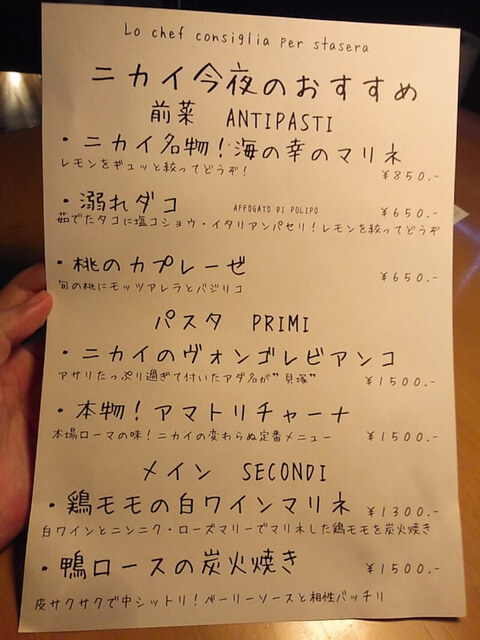 Lo chef consiglia per stasera
ニカイ今夜のおすすめ
前菜 ANTIPASTI
・ニカイ名物!海の幸のマリネ
レモンをギュッと絞ってどうぞ!
¥850.-
・溺れダコ AFFOGATO DI POLIPO ¥650.-
茹でたタコに塩コショウ・イタリアンパセリ!レモンを絞ってどうぞ
・桃のカプレーゼ ¥650.-
旬の桃にモッツアレラとバジリコ
パスタ PRIMI
・ニカイのヴォンゴレビアンコ
アサリたっぷり過ぎて付いたアダ名が"貝塚" ¥1500.-
・本物!アマトリチャーナ
本場ローマの味!ニカイの変わらぬ定番メニュー ¥1500.-
メイン SECONDI
・鶏モモの白ワインマリネ ¥1300.-
白ワインとニンニク・ローズマリーでマリネした鶏モモを炭火焼き
・鴨ロースの炭火焼き ¥1500.-
皮サクサクで中シットリ!ベーリーソースと相性バッチリ